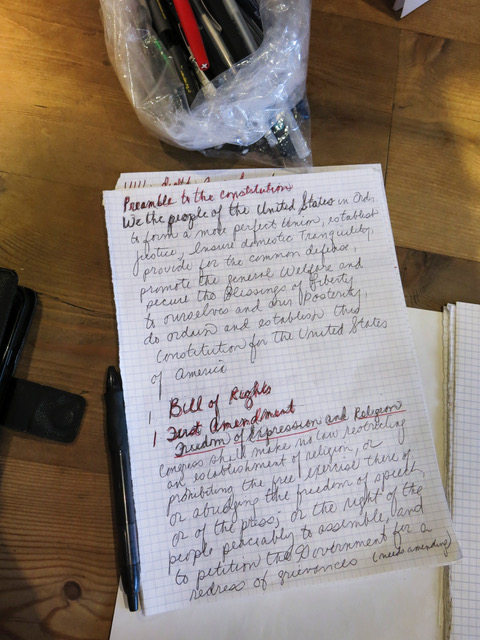 Preamble to the constitution
We the people of the United States in Order
to form a more perfect Union, establish
justice, ensure domestic Tranquility,
provide for the common defense,
promote the general Welfare and
secure the Blessings of Liberty
to ourselves and our Posterity,
do ordain and establish this
Constitution for the United States
of America
1 Bill of Rights
1 First Amendment
Freedom of Expression and Religion
Congress shall make no law restricting
an establishment of religion, or
prohibiting the free exercise there of
or abridging the freedom of speech,
or of the press, or the right of the
people peaceably to assemble, and
to petition the Government for a
redress of grievances (needs amending)